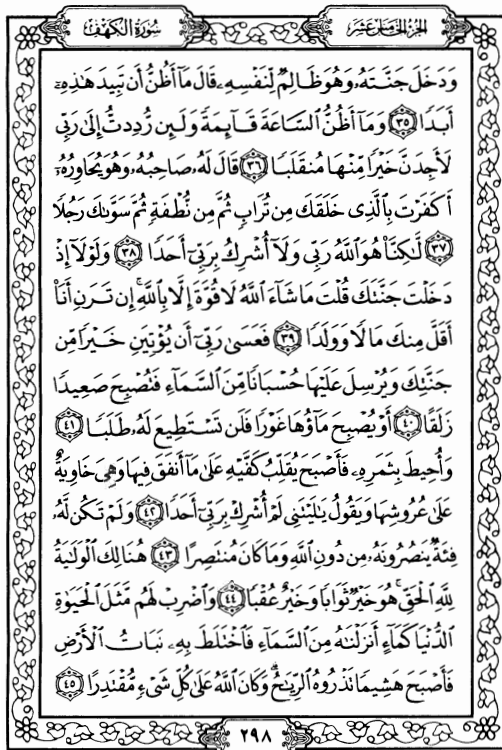 الجزء الخامس عشر
سورة الكهف
وَدَخَلَ جَنَّتَهُۥ وَهُوَ ظَالِمٌ لِّنَفْسِهِۦ قَالَ مَآ أَظُنُّ أَن تَبِيدَ هَـٰذِهِۦٓ
أَبَدًا ٣٥ وَمَآ أَظُنُّ ٱلسَّاعَةَ قَآئِمَةً وَلَئِن رُّدِدتُّ إِلَىٰ رَبِّى
لَأَجِدَنَّ خَيْرًا مِّنْهَا مُنقَلَبًا ٣٦ قَالَ لَهُۥ صَاحِبُهُۥ وَهُوَ يُحَاوِرُهُۥٓ
أَكَفَرْتَ بِٱلَّذِى خَلَقَكَ مِن تُرَابٍ ثُمَّ مِن نُّطْفَةٍ ثُمَّ سَوَّىٰكَ رَجُلًا
٣٧ لَّـٰكِنَّا۠ هُوَ ٱللَّهُ رَبِّى وَلَآ أُشْرِكُ بِرَبِّىٓ أَحَدًا ٣٨ وَلَوْلَآ إِذْ
دَخَلْتَ جَنَّتَكَ قُلْتَ مَا شَآءَ ٱللَّهُ لَا قُوَّةَ إِلَّا بِٱللَّهِ ۚ إِن تَرَنِ أَنَا۠
أَقَلَّ مِنكَ مَالًا وَوَلَدًا ٣٩ فَعَسَىٰ رَبِّىٓ أَن يُؤْتِيَنِ خَيْرًا مِّن
جَنَّتِكَ وَيُرْسِلَ عَلَيْهَا حُسْبَانًا مِّنَ ٱلسَّمَآءِ فَتُصْبِحَ صَعِيدًا
زَلَقًا ٤٠ أَوْ يُصْبِحَ مَآؤُهَا غَوْرًا فَلَن تَسْتَطِيعَ لَهُۥ طَلَبًا ٤١
وَأُحِيطَ بِثَمَرِهِۦ فَأَصْبَحَ يُقَلِّبُ كَفَّيْهِ عَلَىٰ مَآ أَنفَقَ فِيهَا وَهِىَ خَاوِيَةٌ
عَلَىٰ عُرُوشِهَا وَيَقُولُ يَـٰلَيْتَنِى لَمْ أُشْرِكْ بِرَبِّىٓ أَحَدًا ٤٢ وَلَمْ تَكُن لَّهُۥ
فِئَةٌ يَنصُرُونَهُۥ مِن دُونِ ٱللَّهِ وَمَا كَانَ مُنتَصِرًا ٤٣ هُنَالِكَ ٱلْوَلَـٰيَةُ
لِلَّهِ ٱلْحَقِّ ۚ هُوَ خَيْرٌ ثَوَابًا وَخَيْرٌ عُقْبًا ٤٤ وَٱضْرِبْ لَهُم مَّثَلَ ٱلْحَيَوٰةِ
ٱلدُّنْيَا كَمَآءٍ أَنزَلْنَـٰهُ مِنَ ٱلسَّمَآءِ فَٱخْتَلَطَ بِهِۦ نَبَاتُ ٱلْأَرْضِ
فَأَصْبَحَ هَشِيمًا تَذْرُوهُ ٱلرِّيَـٰحُ ۗ وَكَانَ ٱللَّهُ عَلَىٰ كُلِّ شَىْءٍ مُّقْتَدِرًا ٤٥
٢٩٨